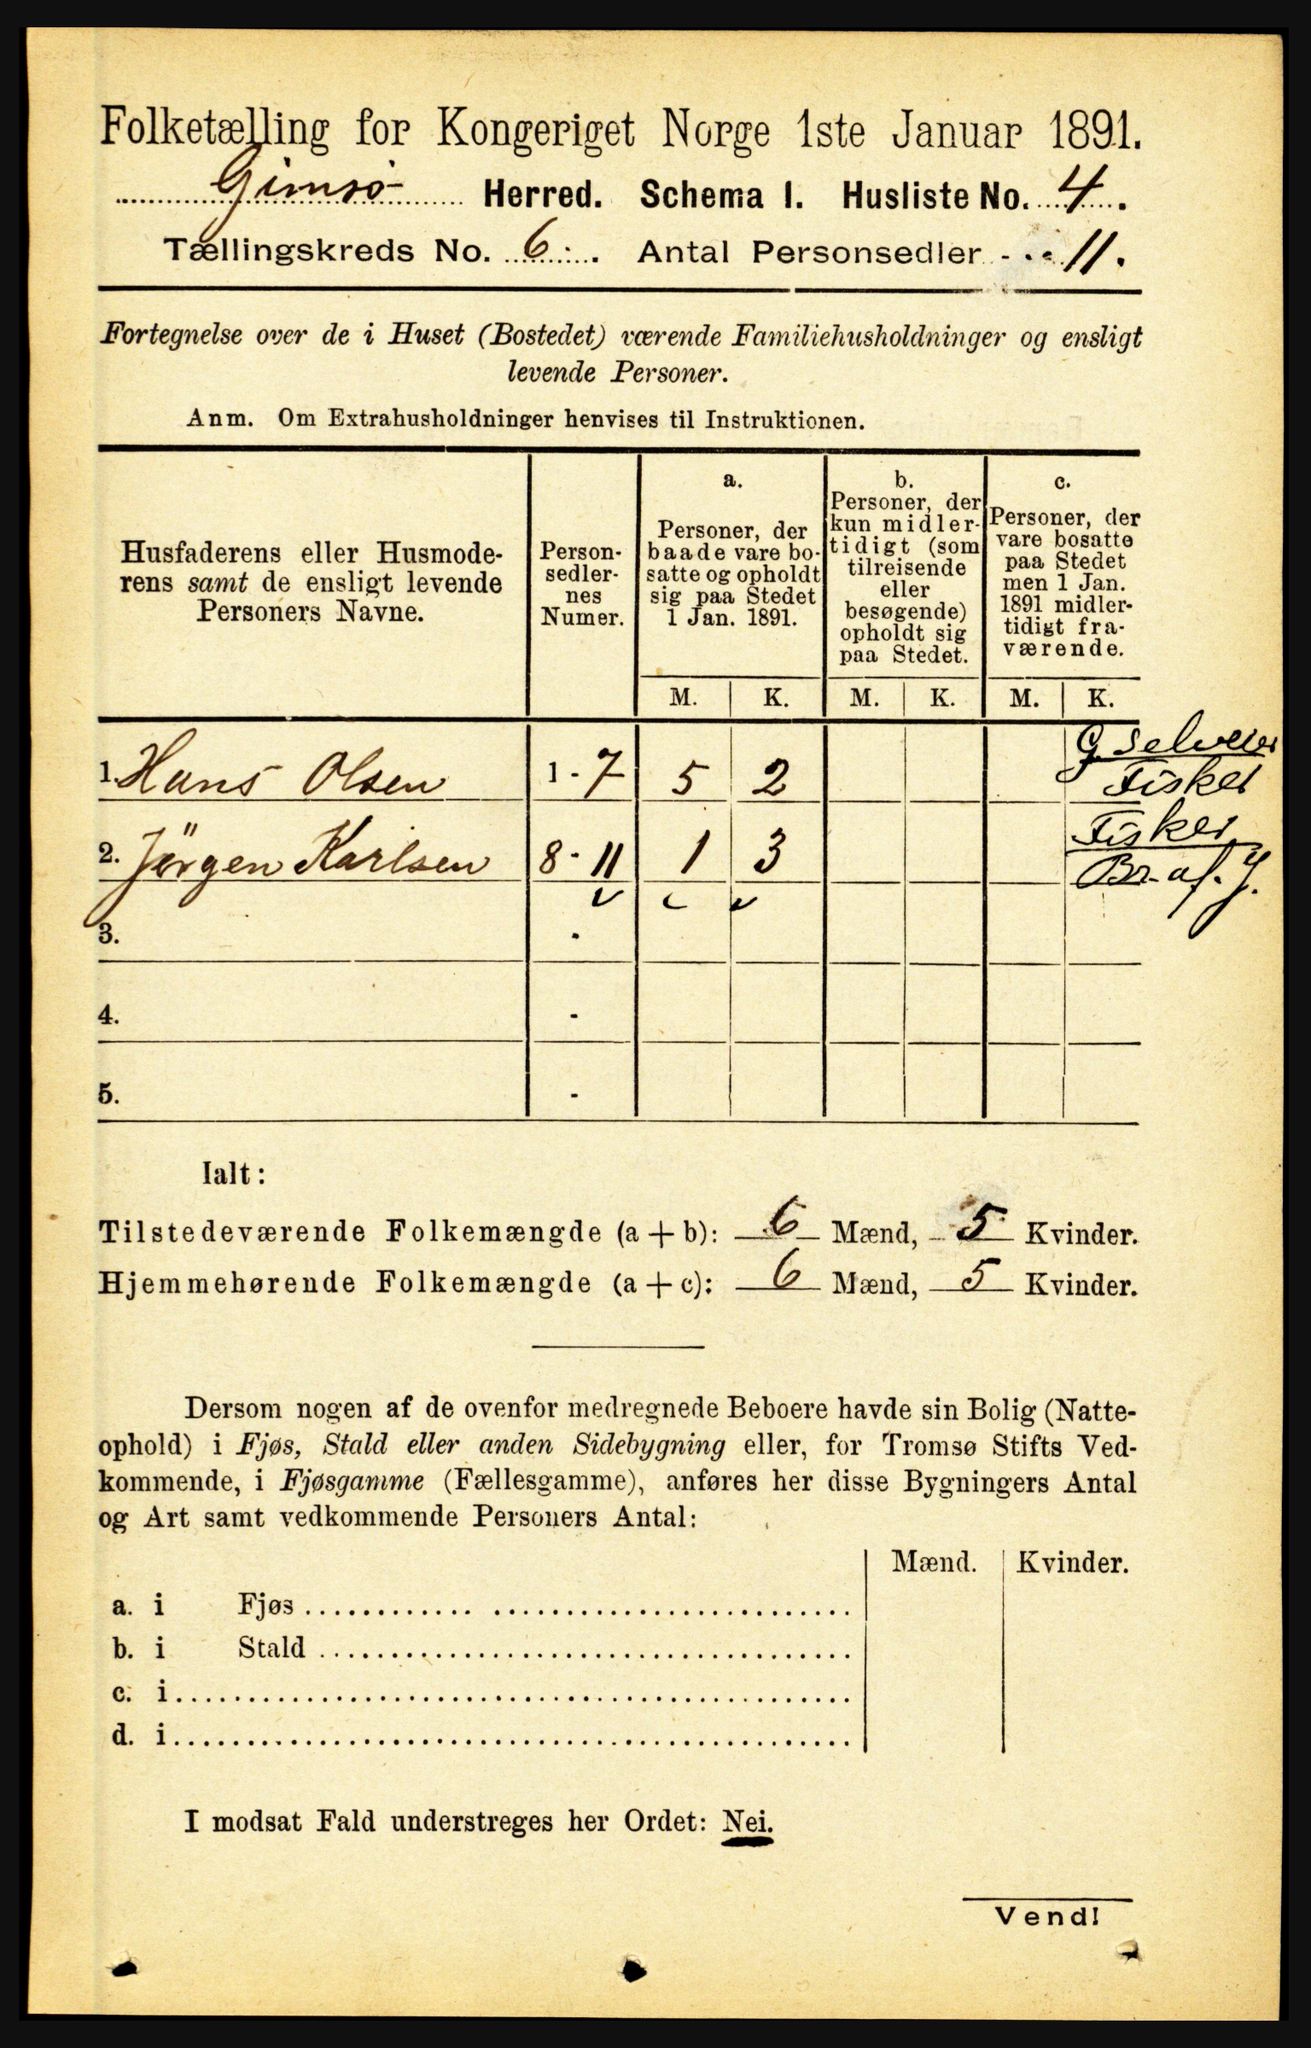 Folketælling for Kongeriget Norge 1ste Januar 1891.
Gimsø Herred. Schema I. Husliste No. 4.
Tællingskreds No. 6. Antal Personsedler 11.
Fortegnelse over de i Huset (Bostedet) værende Familiehusholdninger og ensligt
levende Personer.
Anm. Om Extrahusholdninger henvises til Instruktionen.
Husfaderens eller Husmode-
rens samt de ensligt levende
Personers Navne.
Person-
sedler-
nes
Numer.
a.
Personer, der
baade vare bo-
satte og opholdt
sig paa Stedet
1 Jan. 1891.
b.
Personer, der
kun midler-
tidigt (som
tilreisende
eller
besøgende)
opholdt sig
paa Stedet.
c.
Personer, der
vare bosatte
paa Stedet
men 1 Jan.
1891 midler-
tidigt fra-
værende.
M. K. M. K. M. K.
1. Hans Olsen 1 - 7 5 2 G. Selveier
Fisker
2. Jörgen Karlsen 8 - 11 1 3 Fisker
Br. af J.
3. -
4. -
5. -
Ialt:
Tilstedeværende Folkemængde (a + b): 6 Mænd, 5 Kvinder.
Hjemmehørende Folkemængde (a + c): 6 Mænd, 5 Kvinder.
Dersom nogen af de ovenfor medregnede Beboere havde sin Bolig (Natte-
ophold) i Fjøs, Stald eller anden Sidebygning eller, for Tromsø Stifts Ved-
kommende, i Fjøsgamme (Fællesgamme), anføres her disse Bygningers Antal
og Art samt vedkommende Personers Antal:
Mænd. Kvinder.
a. i Fjøs
b. i Stald
c. i
d. i
I modsat Fald understreges her Ordet: Nei.
Vend!